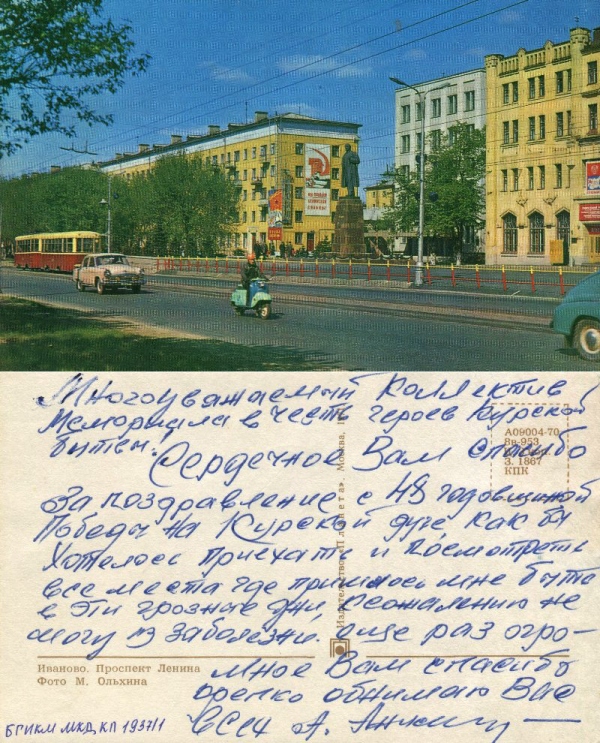 Многоуважаемый Коллектив
Мемориала в честь героев Курской
битвы!
Сердечное Вам спасибо
за поздравление с 48 годовщиной
Победы на Курской дуге как бы
хотелось приехать и посмотреть
все места где пришлось мне быть
в эти грозные дни, ксожалению не
могу из заболезни. еще раз огро-
мное Вам спасибо
крепко обнимаю Вас
всех А.
А09004-70
8в-953
З. 1867
КПК
Издательство «Планета». Москва.
Иваново. Проспект Ленина
Фото М. Ольхина
БГИКМ МКД КП 1937/1